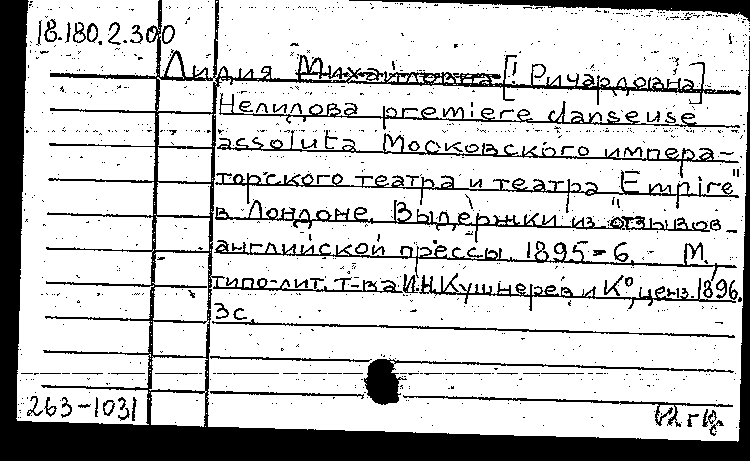 18.180.2.300
Лидия Михайловна [! Ричардовна]
Нелидова premiere danseuse
assoluta Московского импера-
торского театра и театра "Empire"
в Лондоне. Выдержки из "отзывов
английской прессы. 1895-6. - М.,
типо-лит. т-ва И.Н. Кушнерев и К°, ценз. 1896.
3с.
263-1031